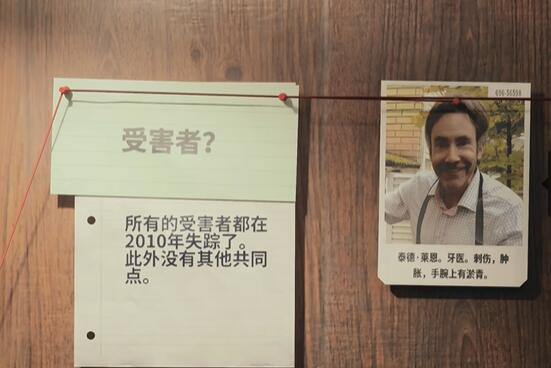 受害者？
所有的受害者都在
2010年失踪了。
此外没有其他共同
点。
泰德·莱恩。牙医。刺伤，肿
胀，手腕上有淤青。